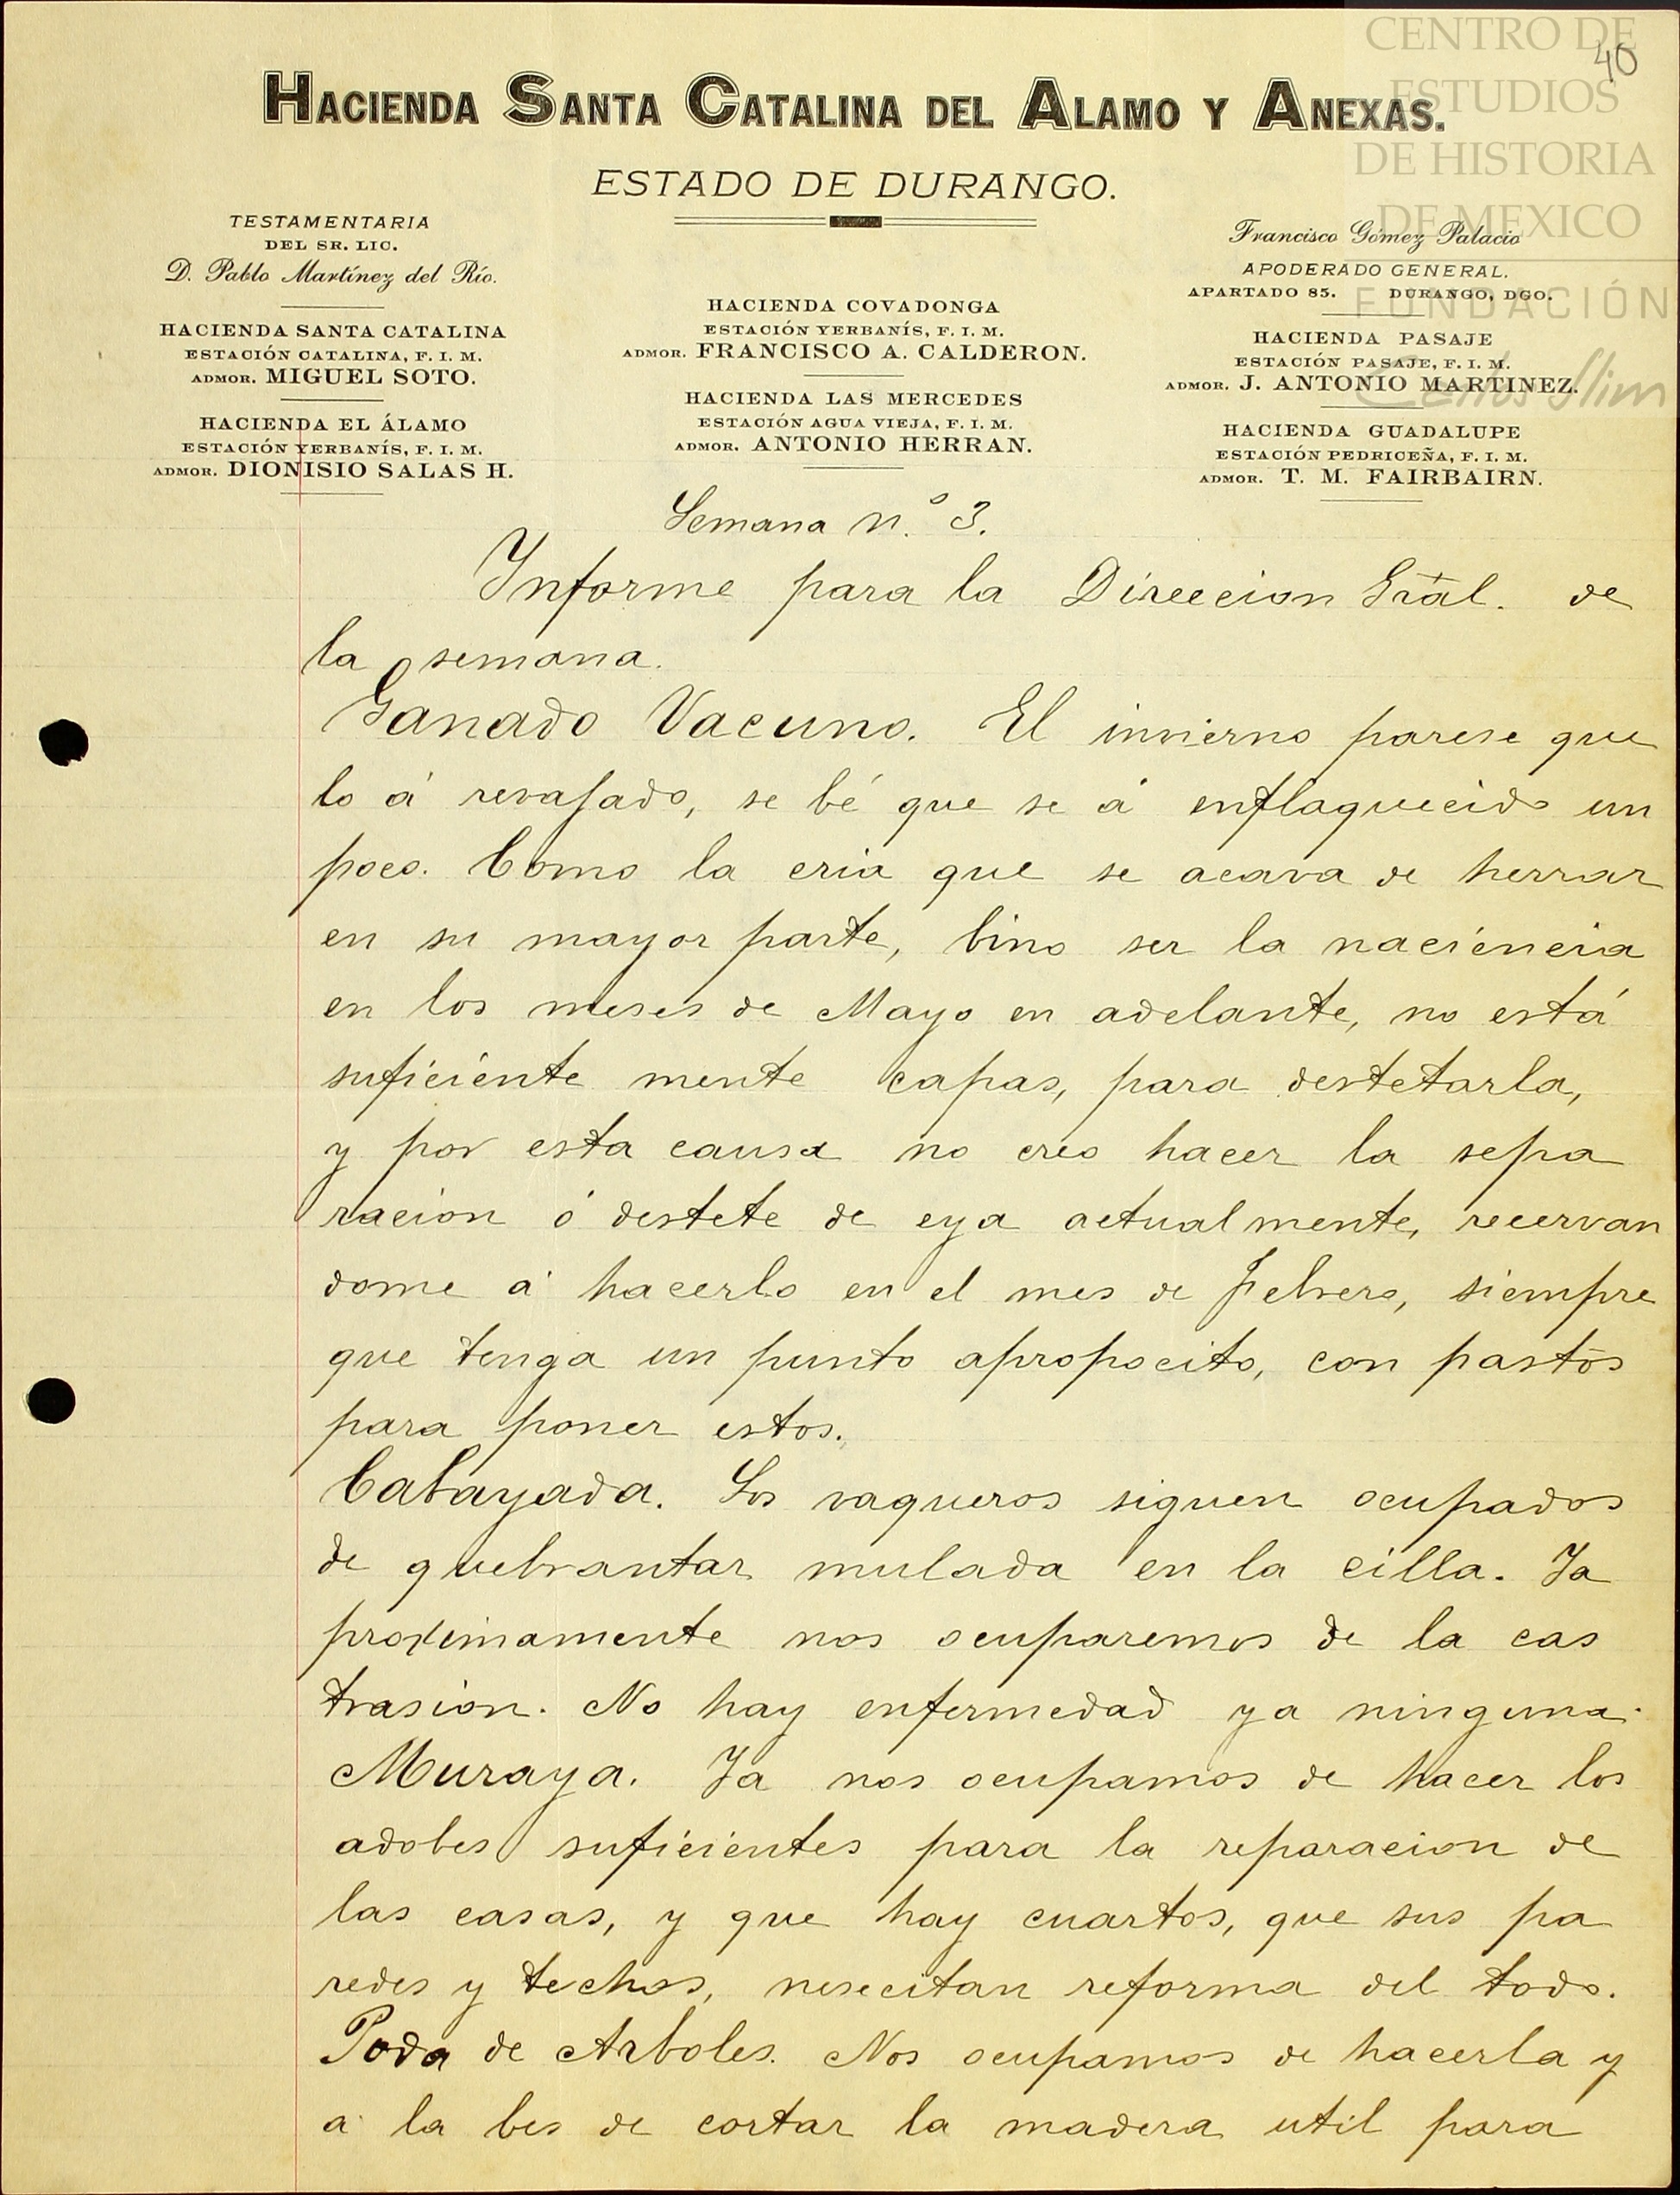 CENTRO DE
ESTUDIOS
DE HISTORIA
DE MEXICO
FUNDACIÓN
Carlos Slim
40
HACIENDA SANTA CATALINA DEL ALAMO Y ANEXAS.
ESTADO DE DURANGO.
TESTAMENTARIA
DEL SR. LIC.
D. Pablo Martínez del Río.
HACIENDA SANTA CATALINA
ESTACIÓN CATALINA, F. I. M.
ADMOR. MIGUEL SOTO.
HACIENDA EL ÁLAMO
ESTACIÓN YERBANÍS, F. I. M.
ADMOR. DIONISIO SALAS H.
HACIENDA COVADONGA
ESTACIÓN YERBANÍS, F. I. M.
ADMOR. FRANCISCO A. CALDERON.
HACIENDA LAS MERCEDES
ESTACIÓN AGUA VIEJA, F. I. M.
ADMOR. ANTONIO HERRAN.
Francisco Gómez Palacio
APODERADO GENERAL.
APARTADO 85. DURANGO, DGO.
HACIENDA PASAJE
ESTACIÓN PASAJE, F. I. M.
ADMOR. J. ANTONIO MARTINEZ.
HACIENDA GUADALUPE
ESTACIÓN PEDRICEÑA, F. I. M.
ADMOR. T. M. FAIRBAIRN.
Semana n.º 3.
Informe para la Direccion Gral. de
la semana.
Ganado Vacuno. El invierno parese que
lo á revajado, se bé que se á enflaquecido un
poco. Como la cria que se acava de herrar
en su mayor parte, bino ser la naciencia
en los meses de Mayo en adelante, no está
suficiente mente capas, para destetarla,
y por esta causa no creo hacer la sepa
racion ó destete de eya actualmente, recervan
dome á hacerlo en el mes de Febrero, siempre
que tenga un punto apropocito, con pastos
para poner estos.
Cabayada. Los vaqueros siguen ocupados
de quebrantar mulada en la cilla. Ya
proximamente nos ocuparemos de la cas
trasion. No hay enfermedad ya ninguna.
Muraya. Ya nos ocupamos de hacer los
adobes suficientes para la reparacion de
las casas, y que hay cuartos, que sus pa
redes y techos, nesecitan reforma del todo.
Poda de Arboles. Nos ocupamos de hacerla y
a la bes de cortar la madera util para